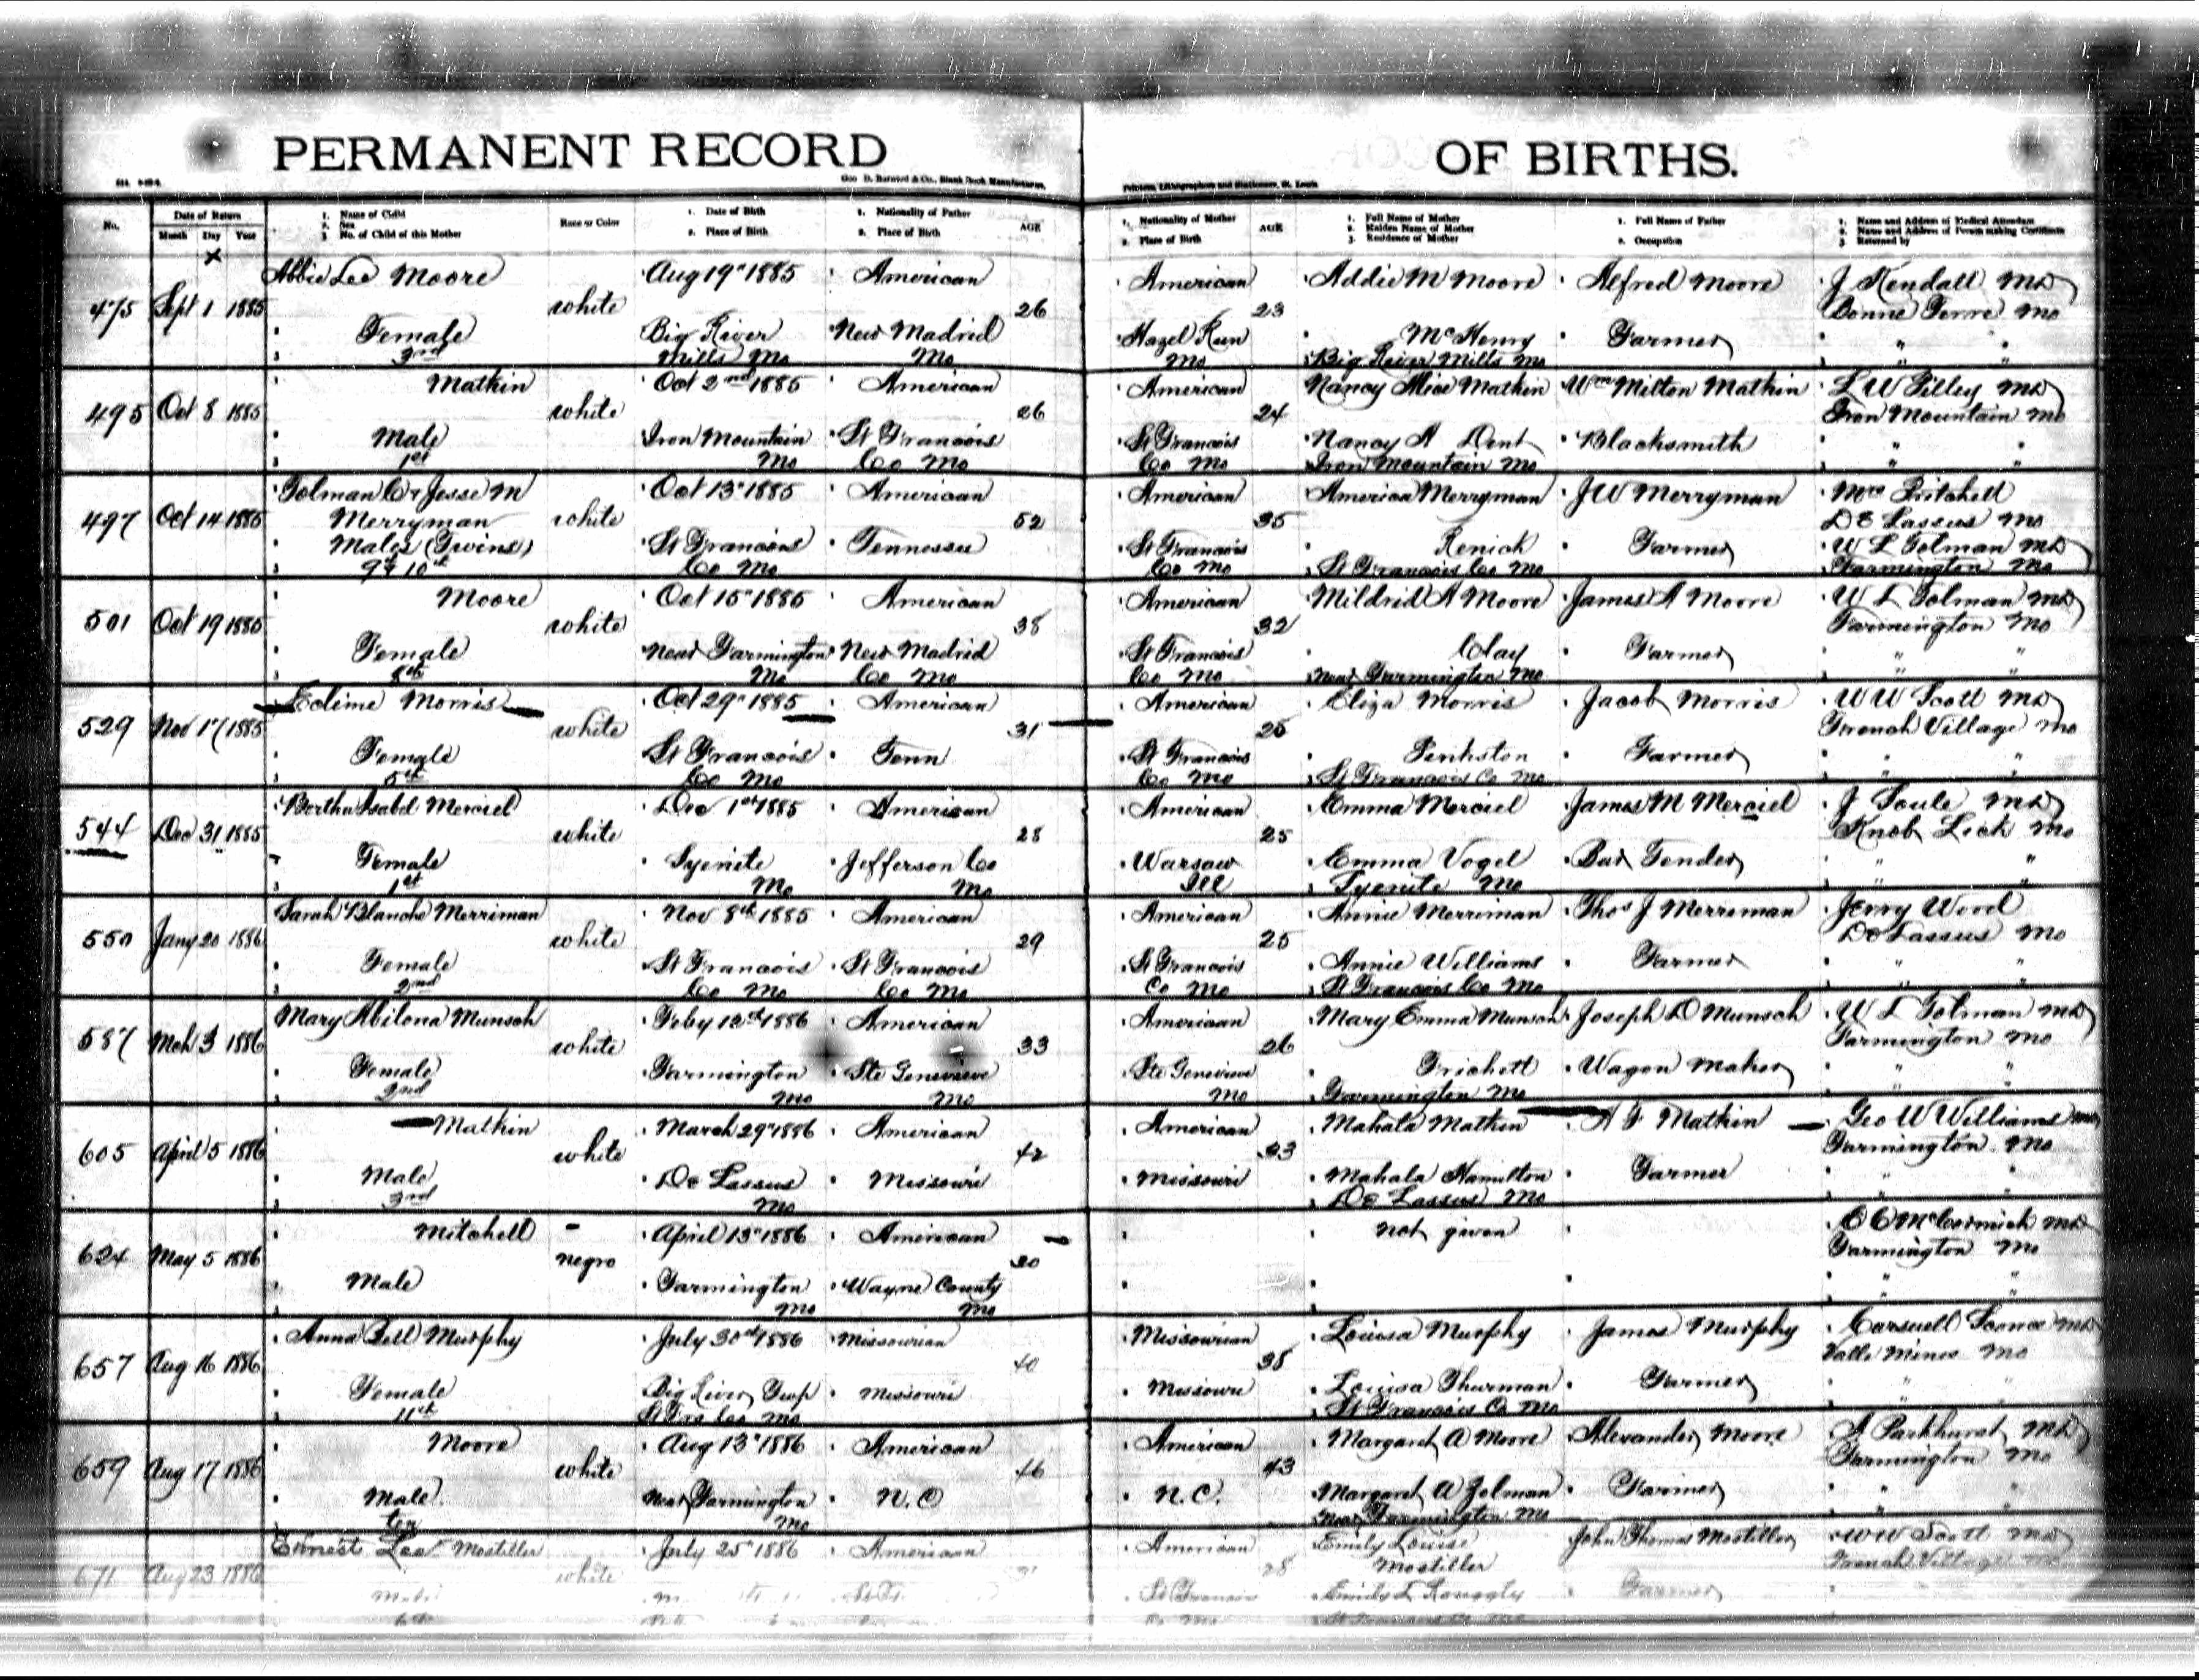 PERMANENT RECORD OF BIRTHS.
Geo D. Barnard & Co., Blank Book Manufacturers,
Printers, Lithographers and Stationers, St. Louis
No.
Date of Return
Month Day Year
1. Name of Child
2. Sex
3. No. of Child of this Mother
Race or Color
1. Date of Birth
2. Place of Birth
1. Nationality of Father
2. Place of Birth
AGE
1. Nationality of Mother
2. Place of Birth
AGE
1. Full Name of Mother
2. Maiden Name of Mother
3. Residence of Mother
1. Full Name of Father
2. Occupation
1. Name and Address of Medical Attendant
2. Name and Address of Person making Certificate
3. Returned by
X
Abbie Lee Moore Aug 19" 1885 American American Addie M Moore Alfred Moore J Kendall MD
475 Sept 1 1885 white 26 23 Bonne Terre Mo
Female Big River New Madrid Hazel Run McHenry Farmer " "
3rd Mills Mo Mo Mo Big River Mills Mo " "
Mathin Oct 2nd 1885 American American Nancy Alice Mathin Wm Milton Mathin L W Pilley MD
495 Oct 8 1885 white 26 24 Iron Mountain Mo
Male Iron Mountain St Francois St Francois Nancy A Dent Blacksmith " "
1st Mo Co Mo Co Mo Iron Mountain Mo " "
Tolman C & Jesse M Oct 13" 1885 American American American Merryman J W Merryman Mrs Pritchell
497 Oct 14 1885 Merryman white 52 35 De Lassus Mo
Males (Twins) St Francois Tennessee St Francois Renick Farmer W L Tolman MD
9 & 10th Co Mo Co Mo St Francois Co Mo Farmington Mo
Moore Oct 15" 1885 American American Mildrid A Moore James A Moore W L Tolman MD
501 Oct 19 1885 white 38 32 Farmington Mo
Female Near Farmington New Madrid St Francois Clay Farmer " "
8th Mo Co Mo Co Mo Near Farmington Mo " "
Edime Morris Oct 29" 1885 American American Eliza Morris Jacob Morris W W Scott MD
529 Nov 17 1885 white 31 25 French Village Mo
Female St Francois Tenn St Francois Penhston Farmer " "
5th Co Mo Co Mo St Francois Co Mo " "
Bertha Isabel Merciel Dec 1st 1885 American American Emma Merciel James M Merciel J Soule MD
544 Dec 31 1885 white 28 25 Knob Lick Mo
Female Syenite Jefferson Co Warsaw Emma Vogel Bar Tender " "
1st Mo Mo Ill Syenite Mo " "
Sarah Blanche Merriman Nov 8th 1885 American American Annie Merriman Thos J Merriman Jerry Wood
550 Jany 20 1886 white 29 25 De Lassus Mo
Female St Francois St Francois St Francois Annie Williams Farmer " "
2nd Co Mo Co Mo Co Mo St Francois Co Mo " "
Mary Abilona Munsch Feby 12th 1886 American American Mary Emma Munsch Joseph D Munsch W L Tolman MD
587 Mch 3 1886 white 33 26 Farmington Mo
Female Farmington Ste Genevieve Ste Genevieve Trichett Wagon Maker " "
2nd Mo Mo Mo Farmington Mo " "
Mathin March 29" 1886 American American Mahala Mathin A F Mathin Geo W Williams MD
605 April 5 1886 white 42 33 Farmington Mo
Male De Lassus Missouri Missouri Mahala Hamilton Farmer " "
3rd Mo De Lassus Mo
Mitchell April 13" 1886 American not given C C McCormick MD
624 May 5 1886 negro 30 Farmington Mo
Male Farmington Wayne County " "
Mo Mo " "
Anna Bell Murphy July 30th 1886 Missourian Missourian Louisa Murphy James Murphy Carswell MD
657 Aug 16 1886 40 38 Valle Mines Mo
Female Big River Twp Missouri Missouri Louisa Thurman Farmer " "
11th St Frs Co Mo St Francois Co Mo " "
Moore Aug 13" 1886 American American Margaret A Moore Alexander Moore A Parkhurst MD
659 Aug 17 1886 white 46 43 Farmington Mo
Male Near Farmington N.C N.C. Margaret A Zolman Farmer " "
ten Mo Near Farmington Mo " "
Ernest Lee Mostiller July 25" 1886 American American Emily Louise John Thomas Mostiller W W Scott MD
671 Aug 23 1886 white 28 Mostiller French Village Mo
Male St Francois Emily L Farmer
Co Mo St Francois Co Mo